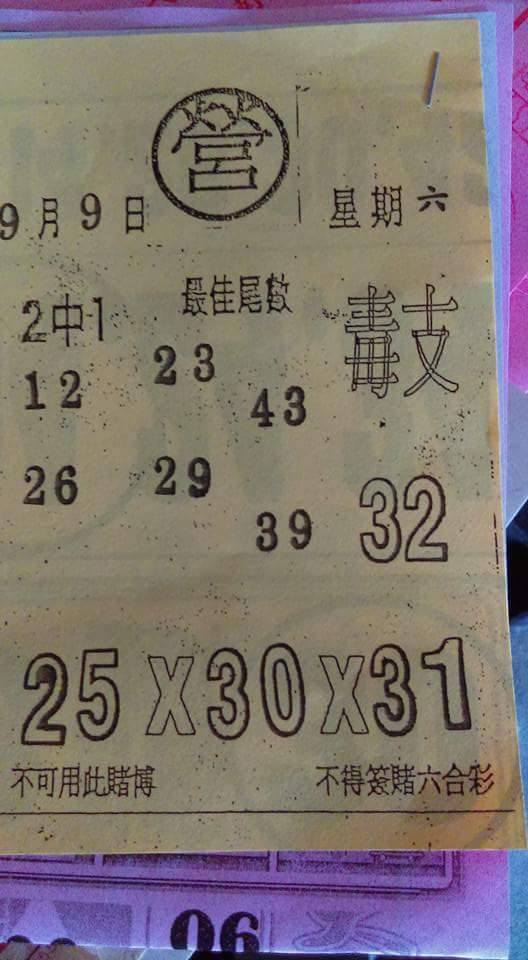 營
9月9日 星期六
2中1 最佳尾數 毒支
12 23 43
26 29 39 32
25X30X31
不可用此賭博 不得簽賭六合彩
06